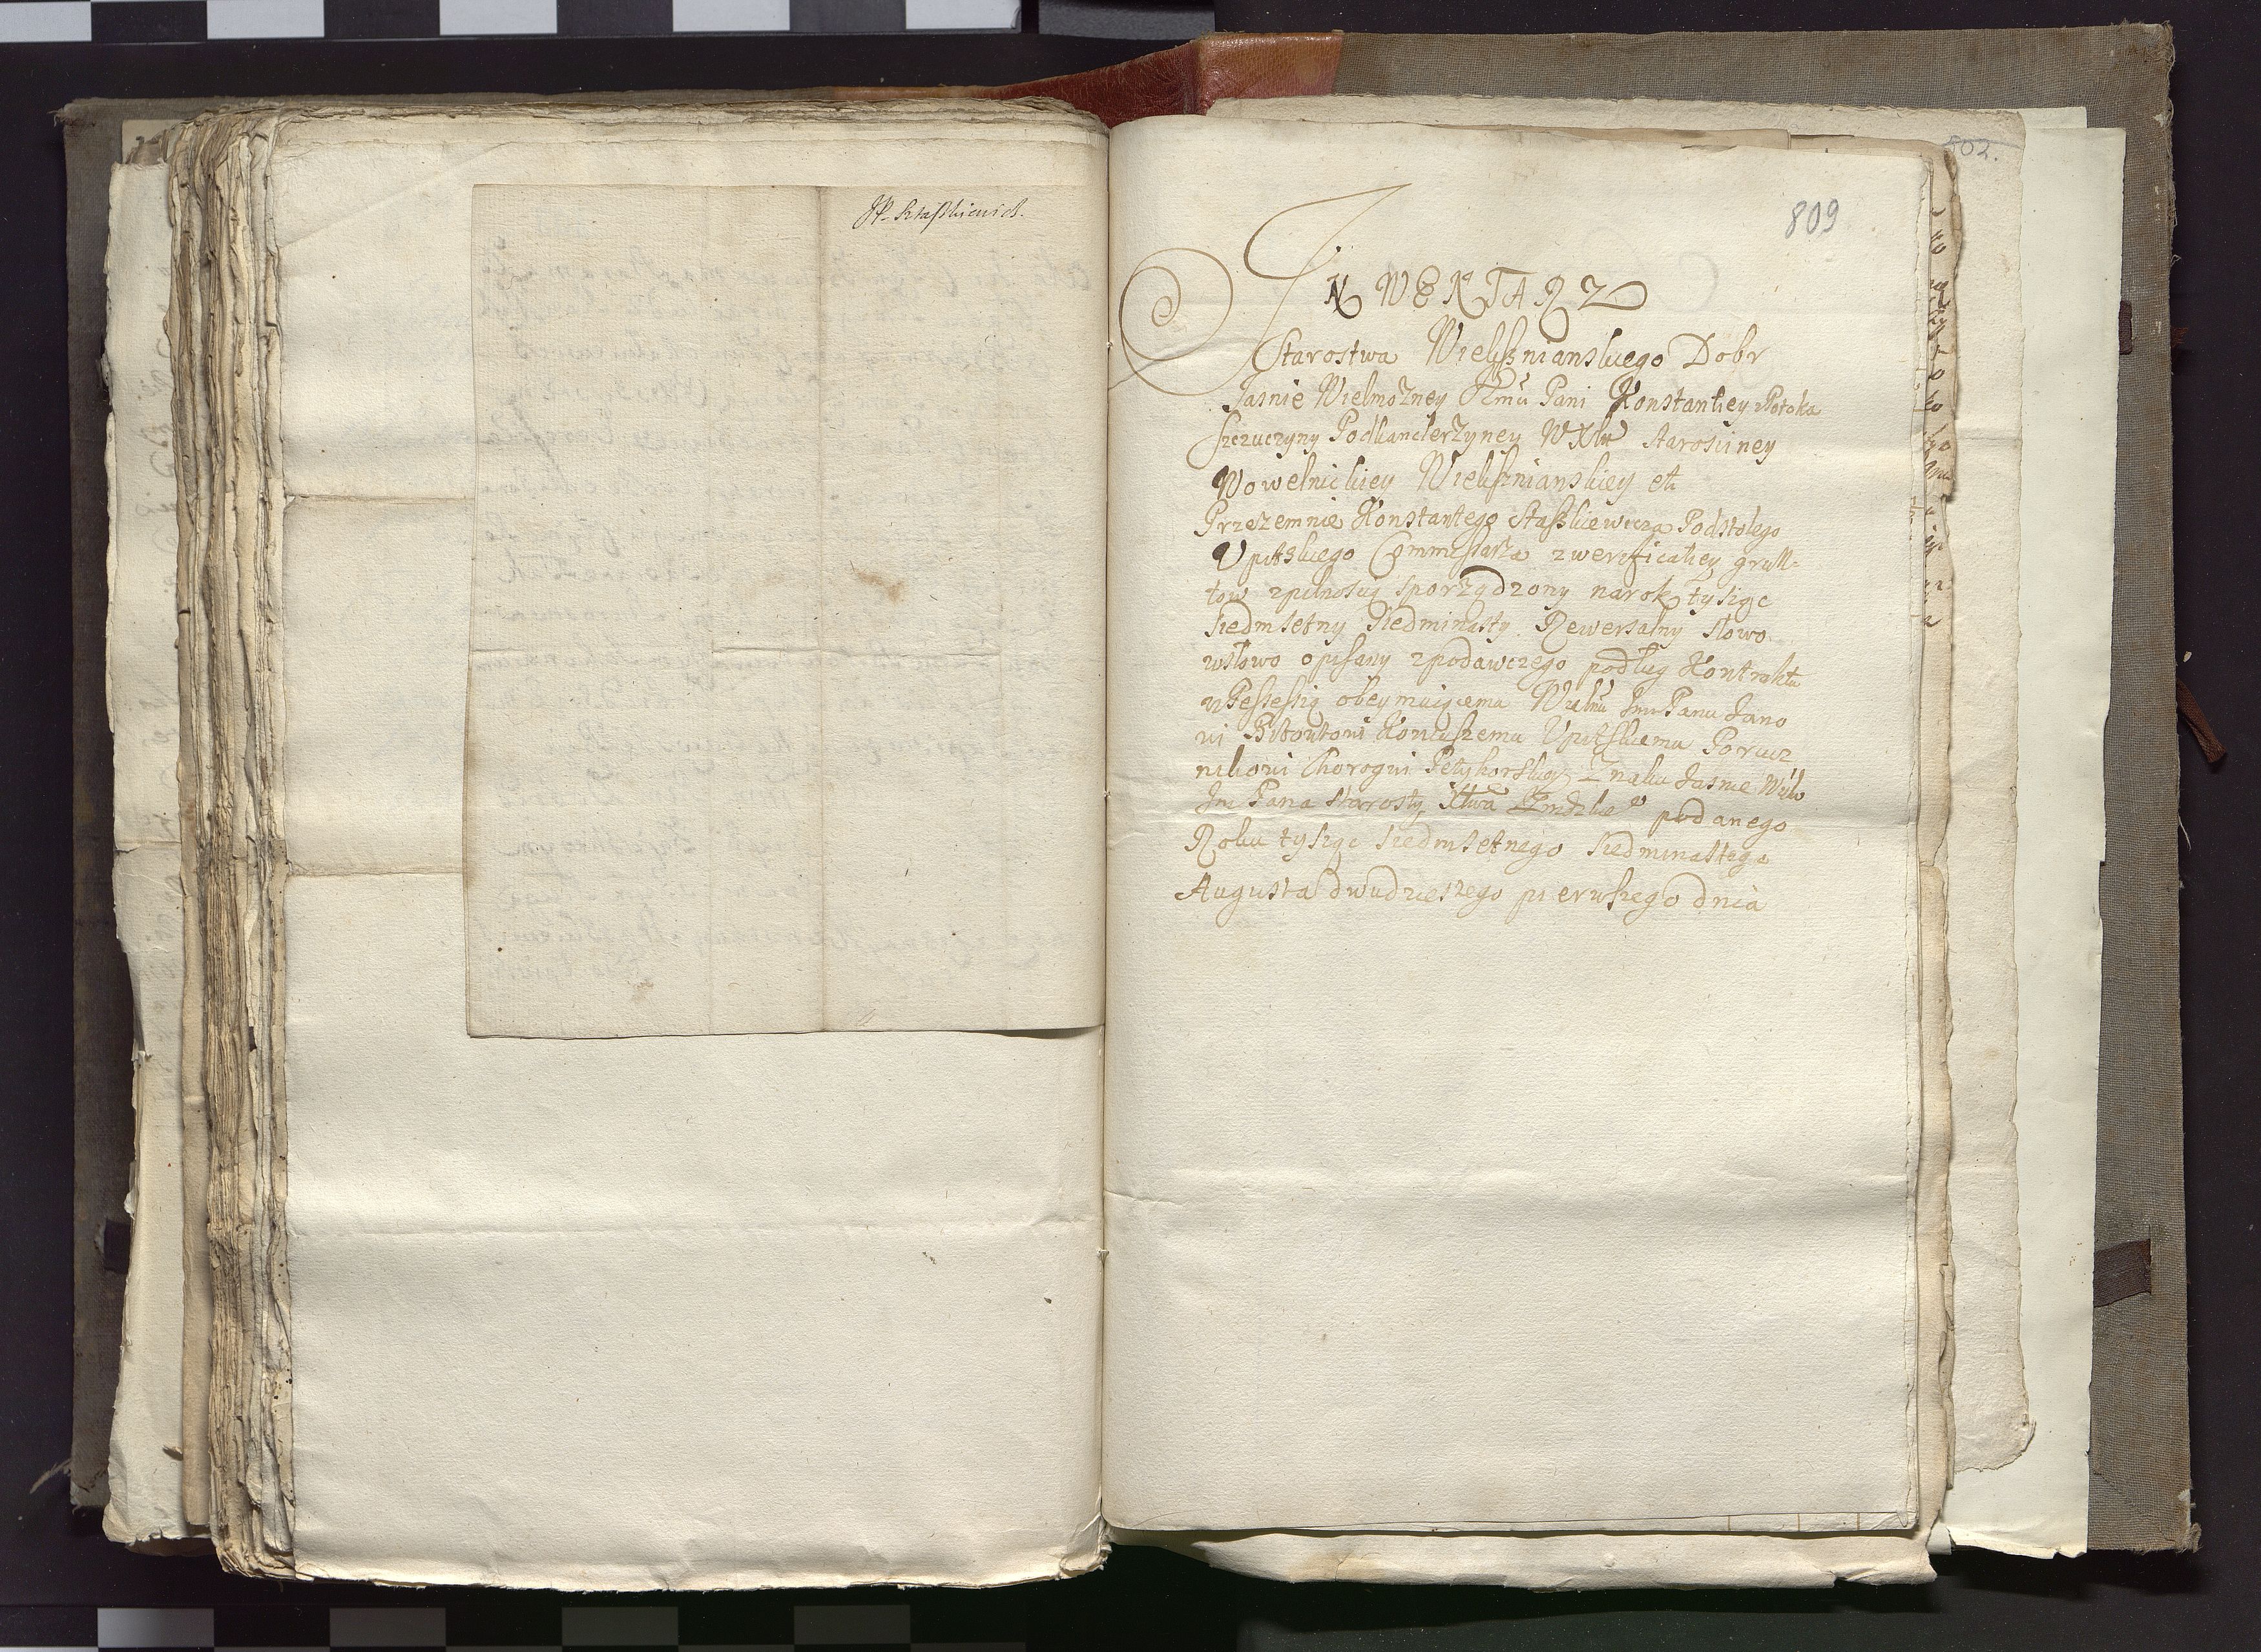 JP. Staszkiewicz.
802.
809
INWENTARZ
Starostwa Wielżnianskiego Dobr
Jasnie Wielmożney Jeymći Pani Konstancyey Potoka
Szczuczyny Podkanclerzyney WXLitt Starosciney
Wowelnickiey Wielżnianskiey etc
Przezemnie Konstantego Staszkiewicza Podstolego
Upitskiego Commissarza z weryficatiey grun-
tow z pilnoscią sporządzony na rok tysiąc
siedmsetny siedminasty Rewersalny słowo
w słowo opisany z podawczego podług Kontraktu
w Possessią obeymuiącemu Wielmu Jmć Panu Jano
wi Koniuszemu Upitskiemu Porucz
nikowi Chorągwi Petyhorskiey Znaku Jasnie Wielm
Jmć Pana Starosty Xtwa Żmdzkie° podanego
Roku tysiąc siedmsetnego siedminastego
Augusta dwudziestego pierwszego dnia